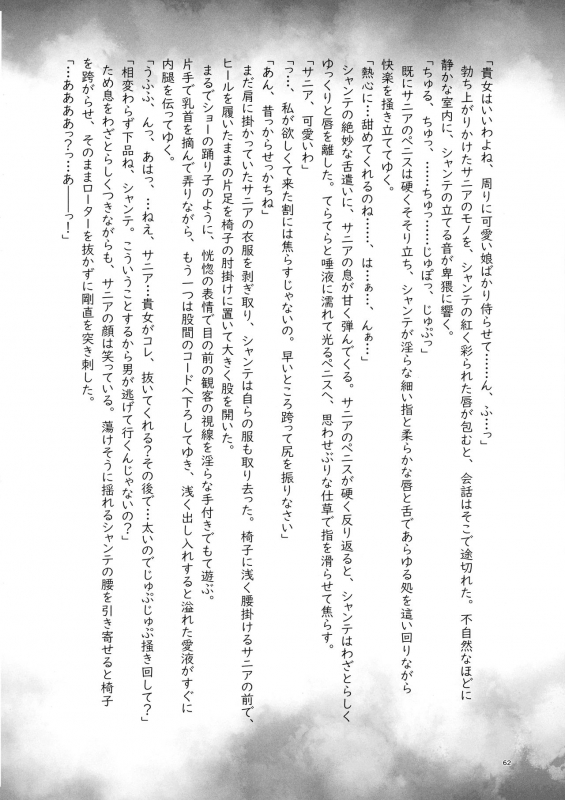 「貴女はいいわよね、周りに可愛い娘ばかり侍らせて……ん、ふ…っ」
勃ち上がりかけたサニアのモノを、シャンテの紅く彩られた唇が包むと、会話はそこで途切れた。不自然なほどに
静かな室内に、シャンテの立てる音が卑猥に響く。
「ちゅる、ちゅっ、……ちゅっ……じゅぽっ、じゅぷっ」
既にサニアのペニスは硬くそそり立ち、シャンテが淫らな細い指と柔らかな唇と舌であらゆる処を這い回りながら
快楽を掻き立ててゆく。
「熱心に…甜めてくれるのね……、は…ぁ…、んぁ…」
シャンテの絶妙な舌遣いに、サニアの息が甘く弾んでくる。サニアのペニスが硬く反り返ると、シャンテはわざとらしく
ゆっくりと唇を離した。てらてらと唾液に濡れて光るペニスへ、思わせぶりな仕草で指を滑らせて焦らす。
「サニア、可愛いわ」
「っ…、私が欲しくて来た割には焦らすじゃないの。早いところ跨って尻を振りなさい」
「あん、昔っからせっかちね」
まだ肩に掛かっていたサニアの衣服を剥ぎ取り、シャンテは自らの服も取り去った。椅子に浅く腰掛けるサニアの前で、
ヒールを履いたままの片足を椅子の肘掛けに置いて大きく股を開いた。
まるでショーの踊り子のように、恍惚の表情で目の前の観客の視線を淫らな手付きでもて遊ぶ。
片手で乳首を摘んで弄りながら、もう一つは股間のコードへ下ろしてゆき、浅く出し入れすると溢れた愛液がすぐに
内腿を伝ってゆく。
「うふふ、んっ、あはっ、…ねえ、サニア…貴女がコレ、抜いてくれる?その後で…太いのでじゅぷじゅぷ掻き回して?」
「相変わらず下品ね、シャンテ。こういうことするから男が逃げて行くんじゃないの?」
ため息をわざとらしくつきながらも、サニアの顔は笑っている。蕩けそうに揺れるシャンテの腰を引き寄せると椅子
を跨がらせ、そのままローターを抜かずに剛直を突き刺した。
「…ああああっ?っ…あ――っ!」
62